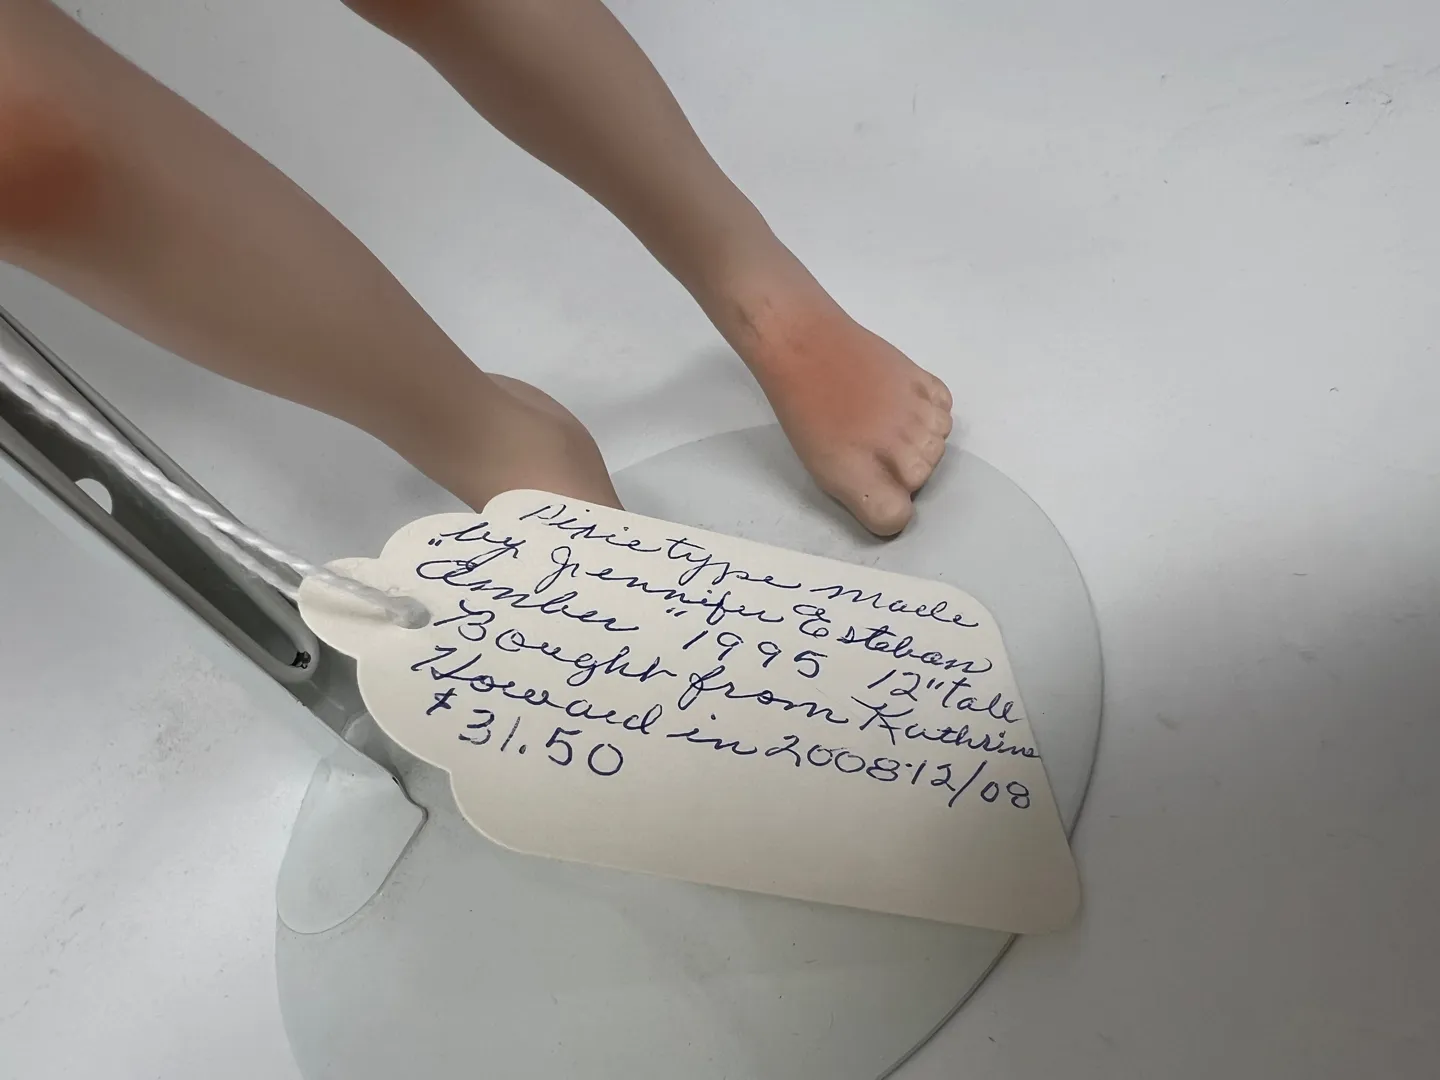 Pixie type made
by Jennifer Esteban
"Amber" 1995 12" tall
Bought from Kathrine
Howard in 2008 12/08
$31.50